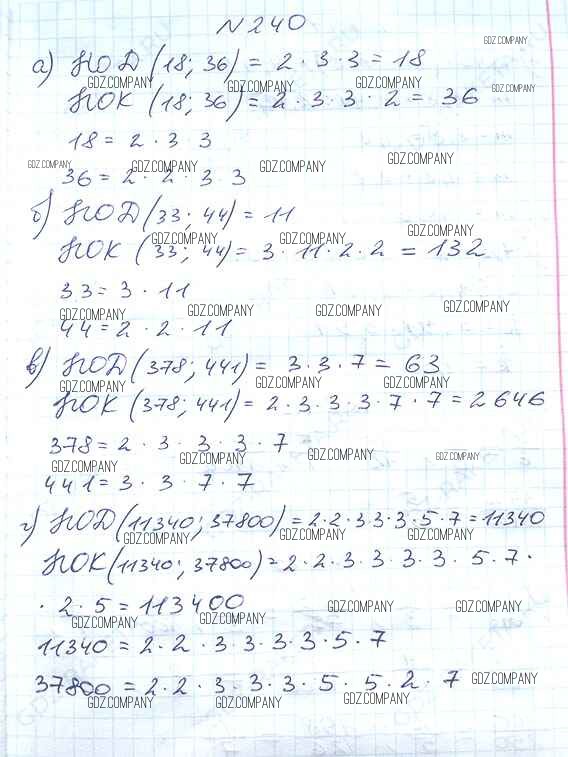 N 240
GDZ.COMPANY
а) НОД (18; 36) = 2 · 3 · 3 = 18
GDZ.COMPANY GDZ.COMPANY GDZ.COMPANY GDZ.COMPANY
НОК (18; 36) = 2 · 3 · 3 · 2 = 36
18 = 2 · 3 · 3
GDZ.COMPANY GDZ.COMPANY GDZ.COMPANY GDZ.COMPANY
36 = 2 · 2 · 3 · 3
б) НОД (33; 44) = 11
GDZ.COMPANY GDZ.COMPANY GDZ.COMPANY
НОК (33; 44) = 3 · 11 · 2 · 2 = 132
33 = 3 · 11
GDZ.COMPANY GDZ.COMPANY GDZ.COMPANY GDZ.COMPANY
44 = 2 · 2 · 11
в) НОД (378; 441) = 3 · 3 · 7 = 63
GDZ.COMPANY GDZ.COMPANY GDZ.COMPANY
НОК (378; 441) = 2 · 3 · 3 · 3 · 7 · 7 = 2646
378 = 2 · 3 · 3 · 3 · 7
GDZ.COMPANY GDZ.COMPANY GDZ.COMPANY GDZ.COMPANY
441 = 3 · 3 · 7 · 7
г) НОД (11340; 37800) = 2 · 2 · 3 · 3 · 3 · 5 · 7 = 11340
GDZ.COMPANY GDZ.COMPANY GDZ.COMPANY
НОК (11340; 37800) = 2 · 2 · 3 · 3 · 3 · 3 · 5 · 7 ·
· 2 · 5 = 113400
GDZ.COMPANY GDZ.COMPANY GDZ.COMPANY GDZ.COMPANY
11340 = 2 · 2 · 3 · 3 · 3 · 3 · 5 · 7
37800 = 2 · 2 · 3 · 3 · 3 · 5 · 5 · 2 · 7
GDZ.COMPANY GDZ.COMPANY GDZ.COMPANY GDZ.COMPANY